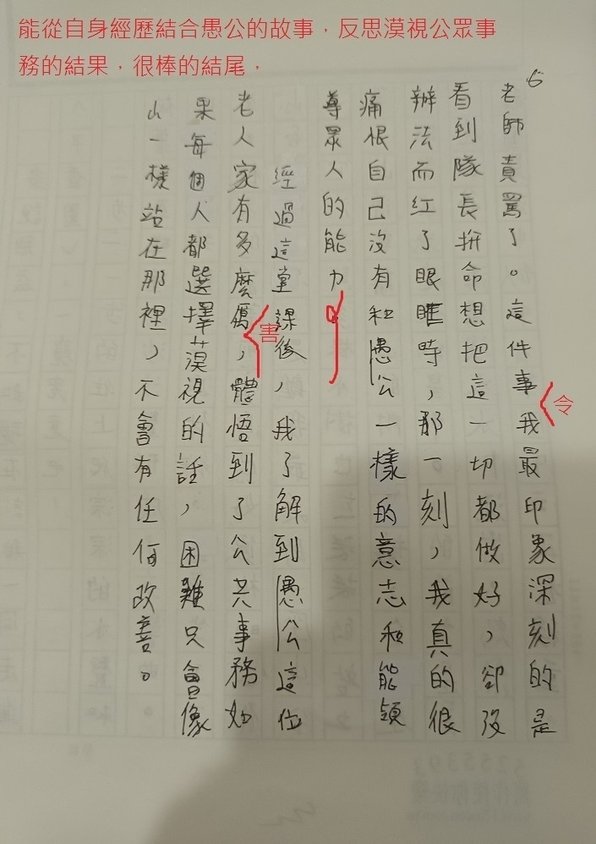 能從自身經歷結合愚公的故事，反思漠視公眾事
務的結果，很棒的結尾，
5
老師責罵了。這件事我最印象深刻的是
令
看到隊長拼命想把這一切都做好，卻沒
辦法而紅了眼眶時，那一刻，我真的很
痛恨自己沒有和愚公一樣的意志和能領
尊眾人的能力
經過這堂課後，我了解到愚公這位
老人家有多麼厲，體悟到了公共事務如
害
果每個人都選擇漠視的話，困難只會像
山一樣站在那裡，不會有任何改善。